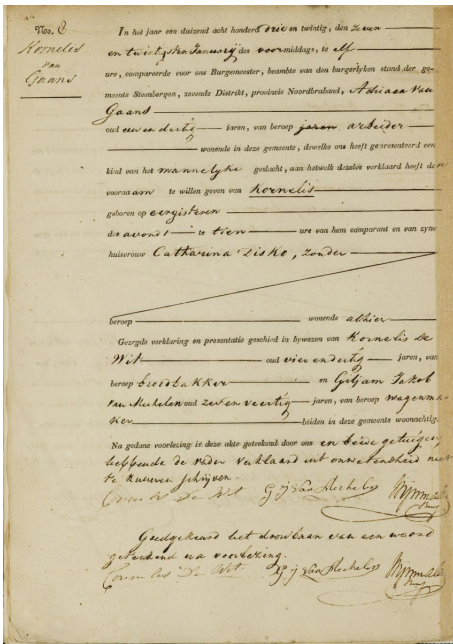 No. 8
Kornelis
van
Gaans
In het jaar een duizend acht honderd drie en twintig, den zeven
en twintigsten Januarij des voormiddags, te elf
ure, compareerde voor ons Burgemeester, beambte van den burgerlyken stand der ge-
meente Steenbergen, zevende Distrikt, provincie Noordbraband, Adriaan van
Gaans
oud een en dertig jaren, van beroep jaren arbeider
wonende in deze gemeente, dewelke ons heeft gepresenteerd een
kind van het mannelyke geslacht, aan hetwelk dezelve verklaard heeft den
voornaam te willen geven van Kornelis
geboren op eergisteren
des avonds te tien ure van hem comparant en van zyne
huisvrouw Catharina Disko, zonder
beroep wonende alhier
Gezegde verklaring en presentatie geschied in bywezen van Kornelis De
Wit oud vier en dertig jaren, van
beroep broodbakker en Giljam Jakob
van Mechelen oud zeven en veertig jaren, van beroep wagenma-
ker beiden in deze gemeente woonachtig.
Na gedane voorlezing is deze akte geteekend door ons en beide getuigen
hebbende de vader verklaard uit onwetendheid niet
te kunnen schrijven.
Cornelis De Wit G J Van Mechelen
Goedgekeurd het doorhalen van een woord
geteekend na voorlezing.
Cornelis De Wit G j Van Mechelen